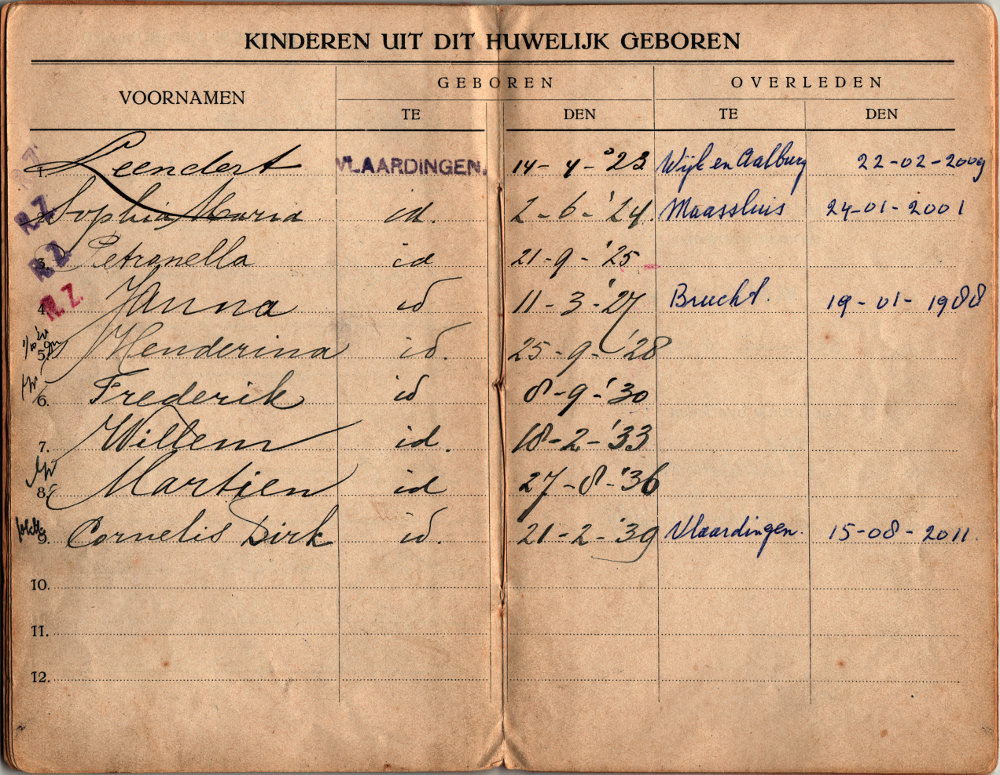 KINDEREN UIT DIT HUWELIJK GEBOREN
VOORNAMEN GEBOREN OVERLEDEN
TE DEN TE DEN
Leendert VLAARDINGEN. 14-4-'23 Wijk en Aalburg 22-02-2009
R.Z. Sophia Maria id. 2-6-'24 Maassluis 24-01-2001
R.Z. 3. Petronella id 21-9-'25
R.Z. 4. Janna id 11-3-'27 Brucht. 19-01-1988
5. Henderina id. 25-9-'28
6. Frederik id 8-9-'30
7. Willem id. 18-2-'33
8. Martien id 27-8-'36
9. Cornelis Dirk id. 21-2-'39 Vlaardingen. 15-08-2011.
10.
11.
12.